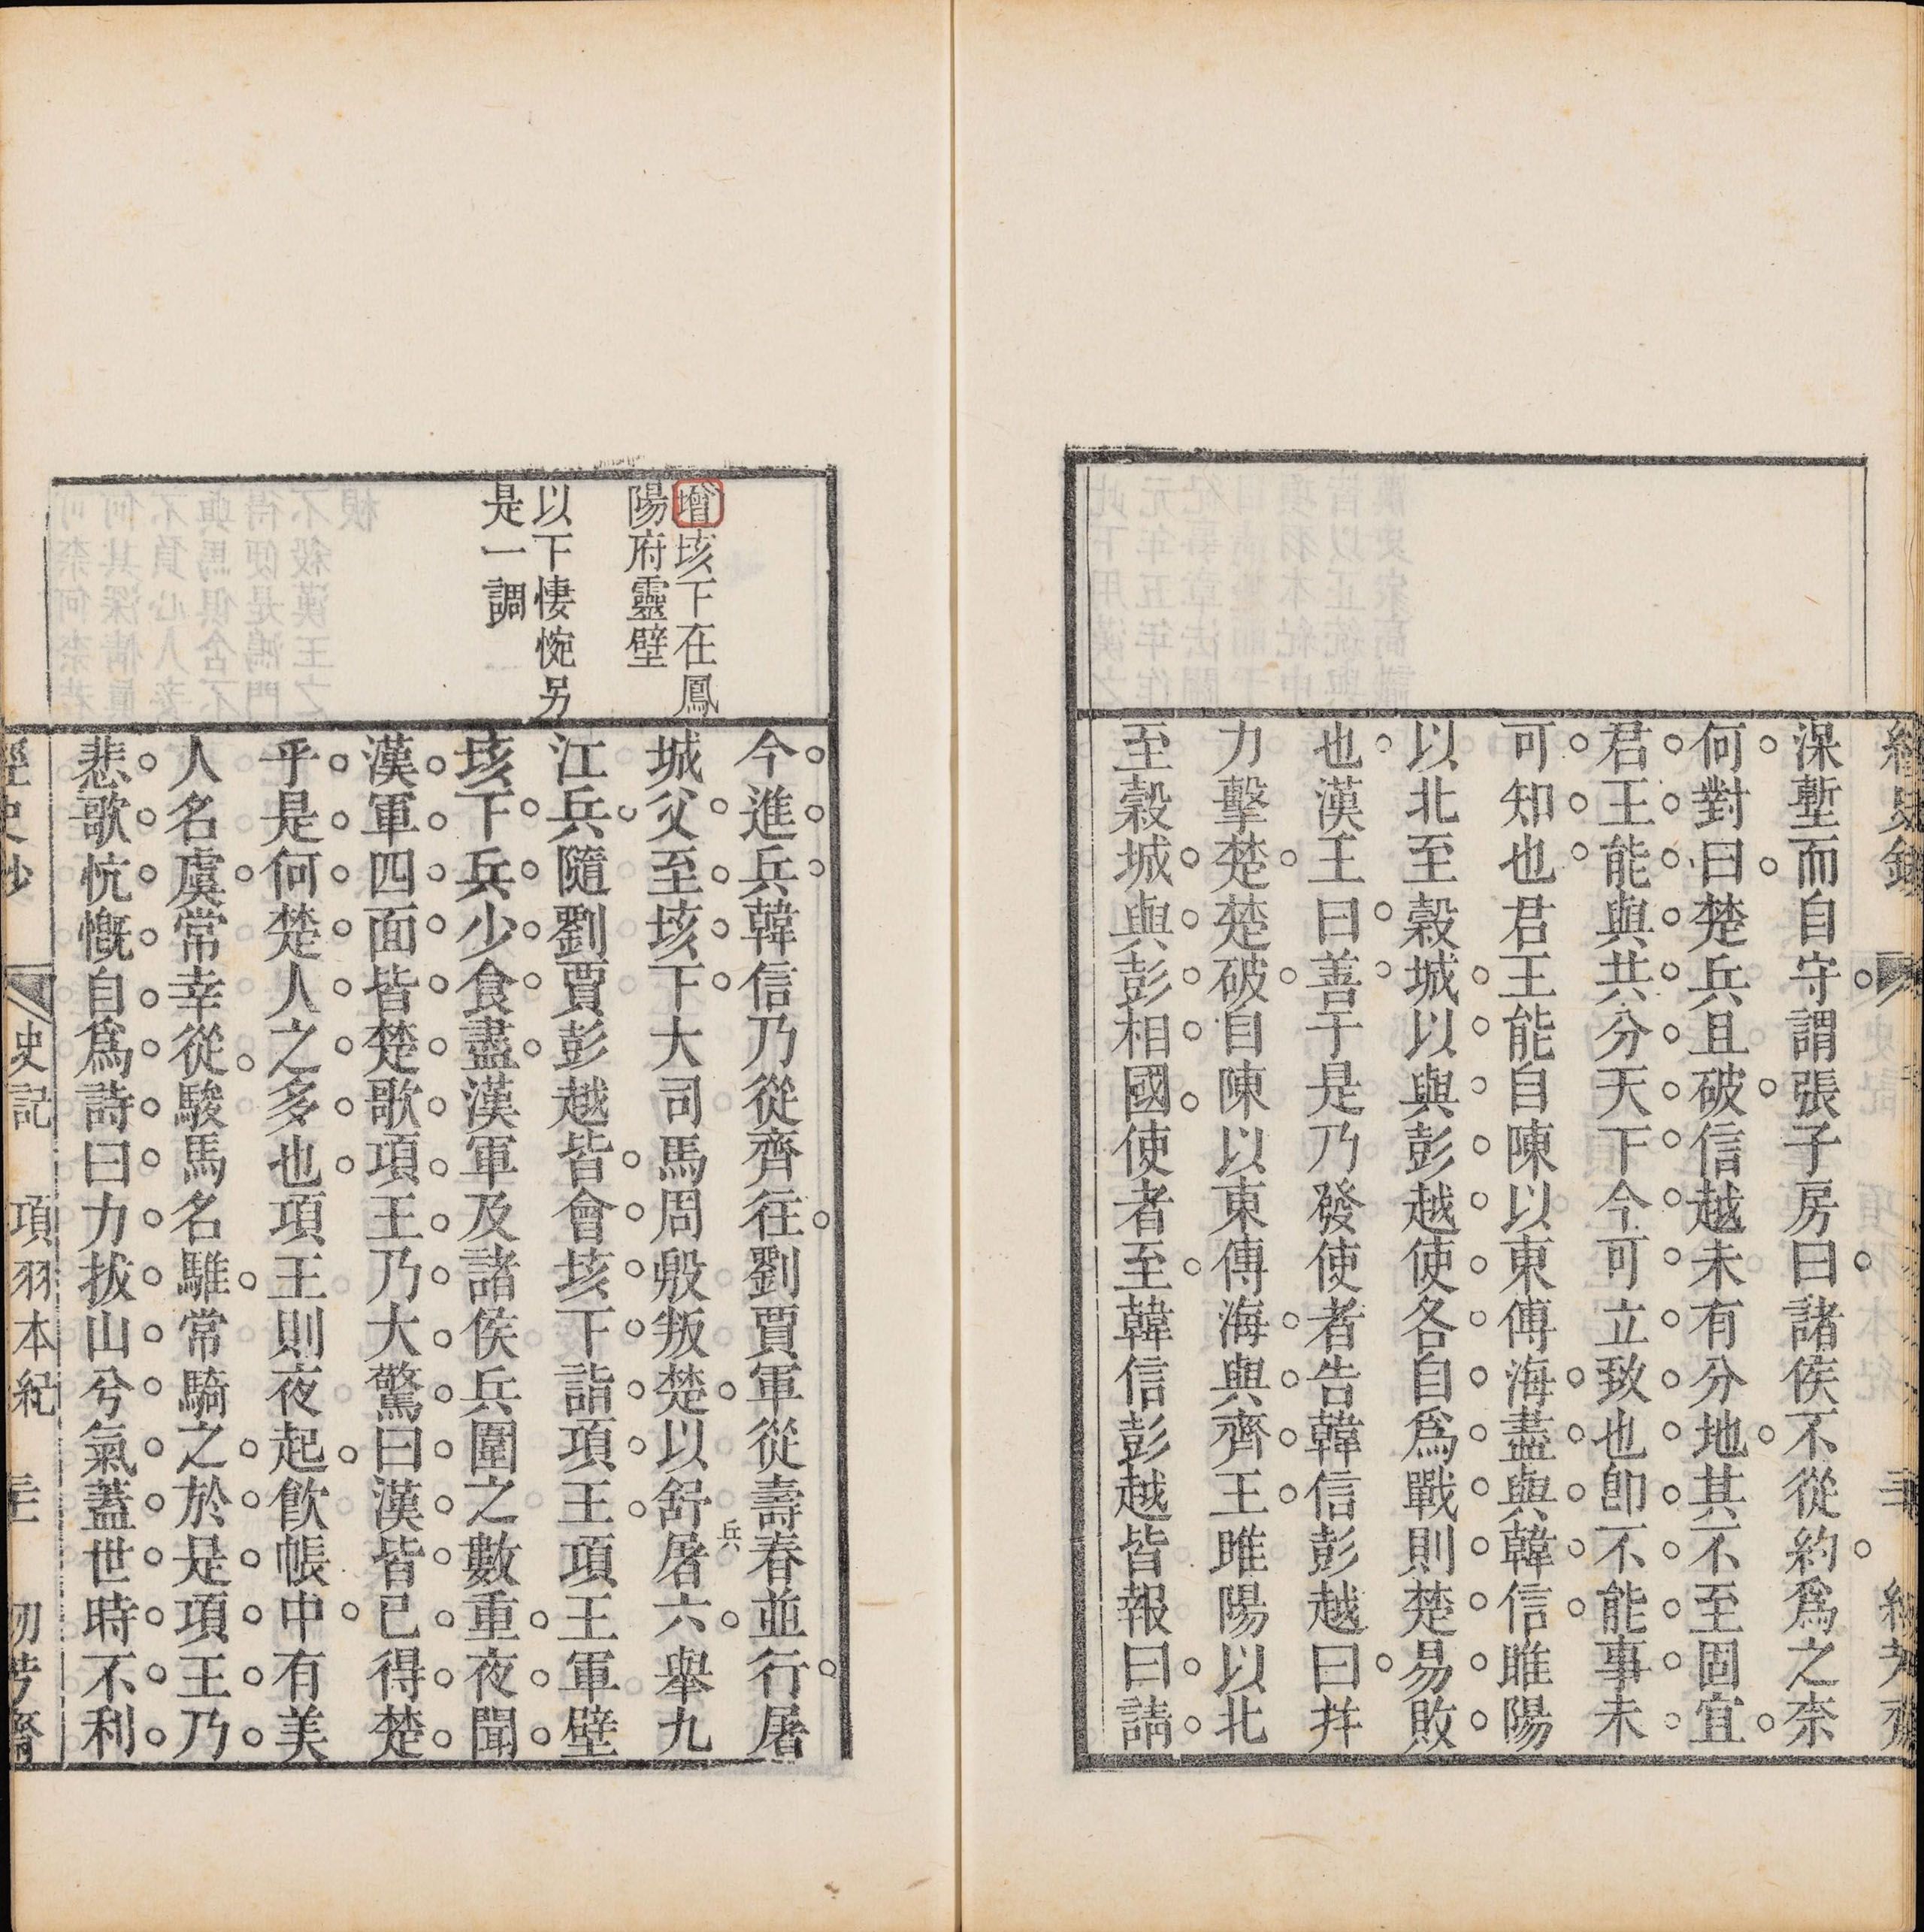 深塹而自守謂張子房曰諸侯不從約爲之奈
何對曰楚兵且破信越未有分地其不至固宜
君王能與共分天下今可立致也卽不能事未
可知也君王能自陳以東傅海盡與韓信睢陽
以北至穀城以與彭越使各自爲戰則楚易敗
也漢王曰善于是乃發使者告韓信彭越曰幷
力擊楚楚破自陳以東傅海與齊王睢陽以北
至穀城與彭相國使者至韓信彭越皆報曰請
增垓下在鳳
陽府靈壁
以下悽惋另
是一調
今進兵韓信乃從齊往劉賈軍從壽春並行屠
城父至垓下大司馬周殷叛楚以舒屠六舉九
兵
江兵隨劉賈彭越皆會垓下詣項王項王軍壁
垓下兵少食盡漢軍及諸侯兵圍之數重夜聞
漢軍四面皆楚歌項王乃大驚曰漢皆已得楚
乎是何楚人之多也項王則夜起飮帳中有美
人名虞常幸從駿馬名騅常騎之於是項王乃
悲歌忼慨自爲詩曰力拔山兮氣蓋世時不利
史記 項羽本紀